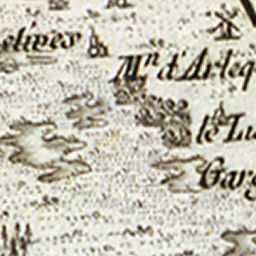 elives
Mⁿ d'Arleq
le Lu
Garg